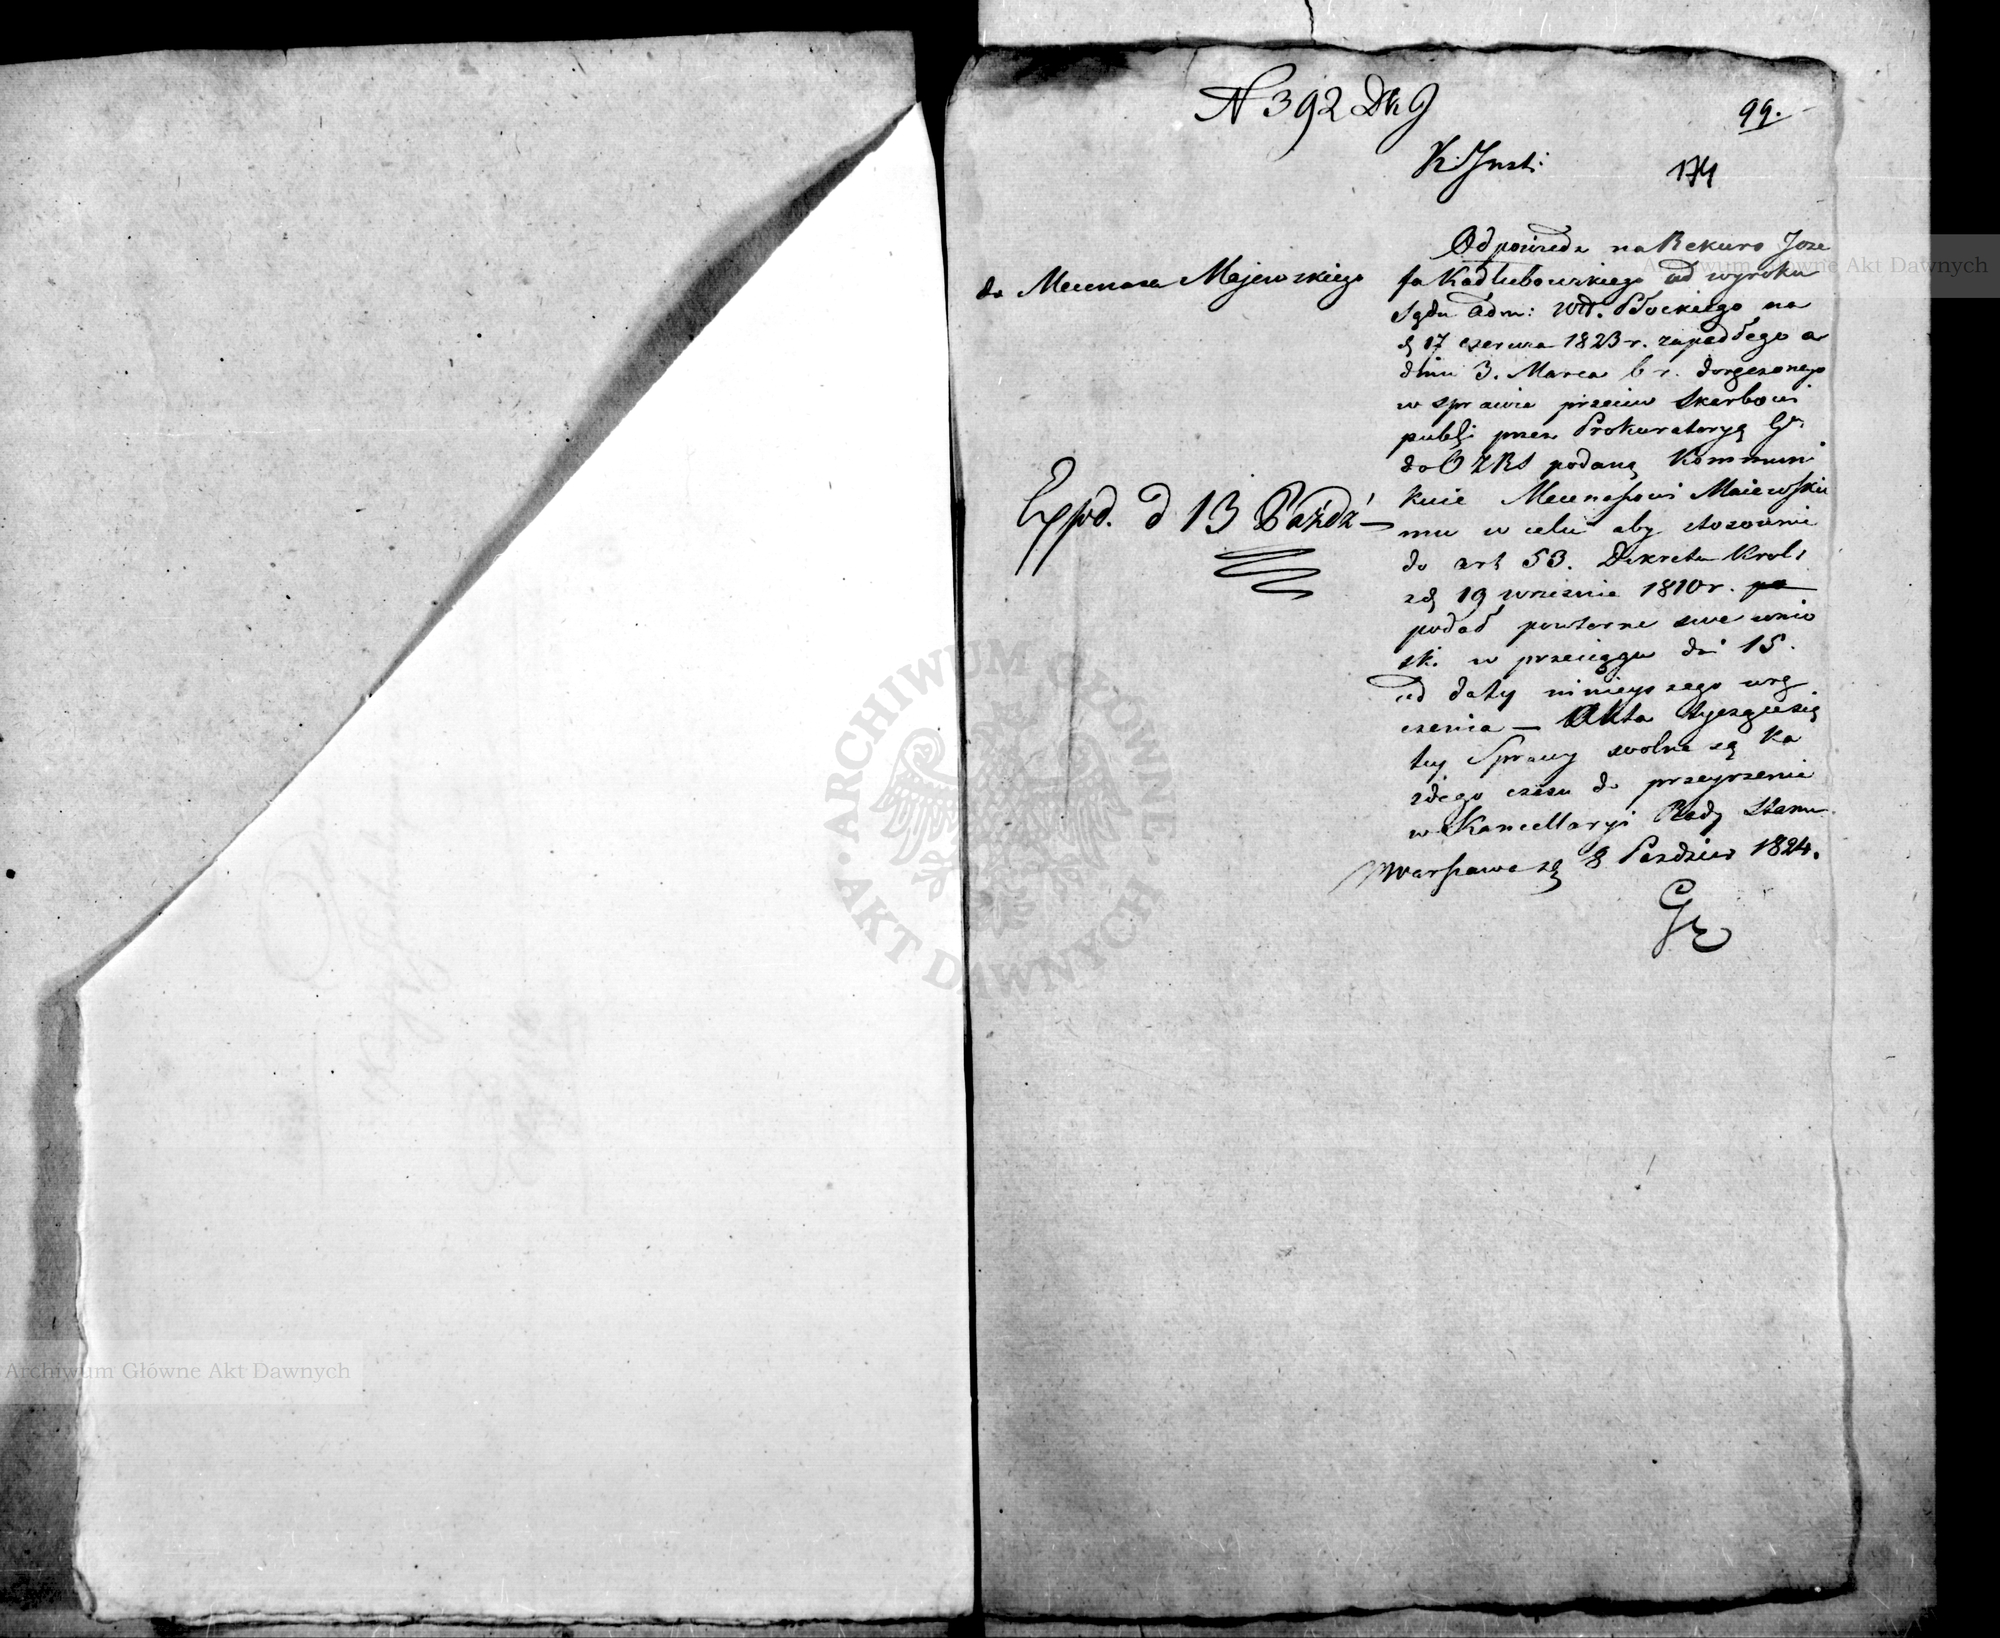 N 392 Dk J
99.
K. Inst:
174
do Mecenasa Majewskiego
Expd. d 13 Paźdź
Odpowiedz na Rekurs Joze
fa Kadłubowskiego od wyroku
Sądu Adm: Wd. Płockiego na
d 17 czerwca 1823 r. zapadłego a
dniu 3. Marca b r. doręczonego
w sprawie przeciw Skarbowi
publ: przez Prokuratoryą Gn
do podaną Kommuni
kuie Mecenasowi Maiewskie
mu w celu aby stosownie
do art 53. Dekretu Krol:
zd 19 września 1810 r. po
podał powtorne swe wnio
sk. w przeciągu dni 15.
od daty ninieyszego wrę
czenia — Akta tyczące się
tey Sprawy wolne są Ka
żdego czasu do przeyrzenia
w Kancellaryi Rady Stanu.
Warszawa zd 8 Paździer 1824.
Archiwum Główne Akt Dawnych
ARCHIWUM GŁÓWNE AKT DAWNYCH
Archiwum Główne Akt Dawnych